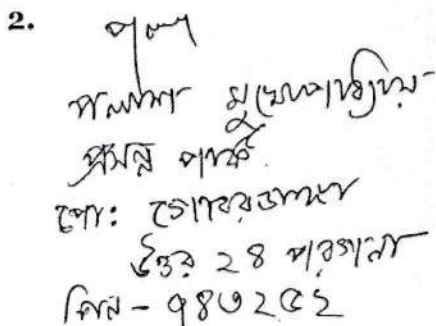 2.
পলাশ মুখোপাধ্যায়
প্রসন্ন পার্ক
পো: গোবরডাঙ্গা
উত্তর ২৪ পারগানা
পিন - ৭৪৩২৫২